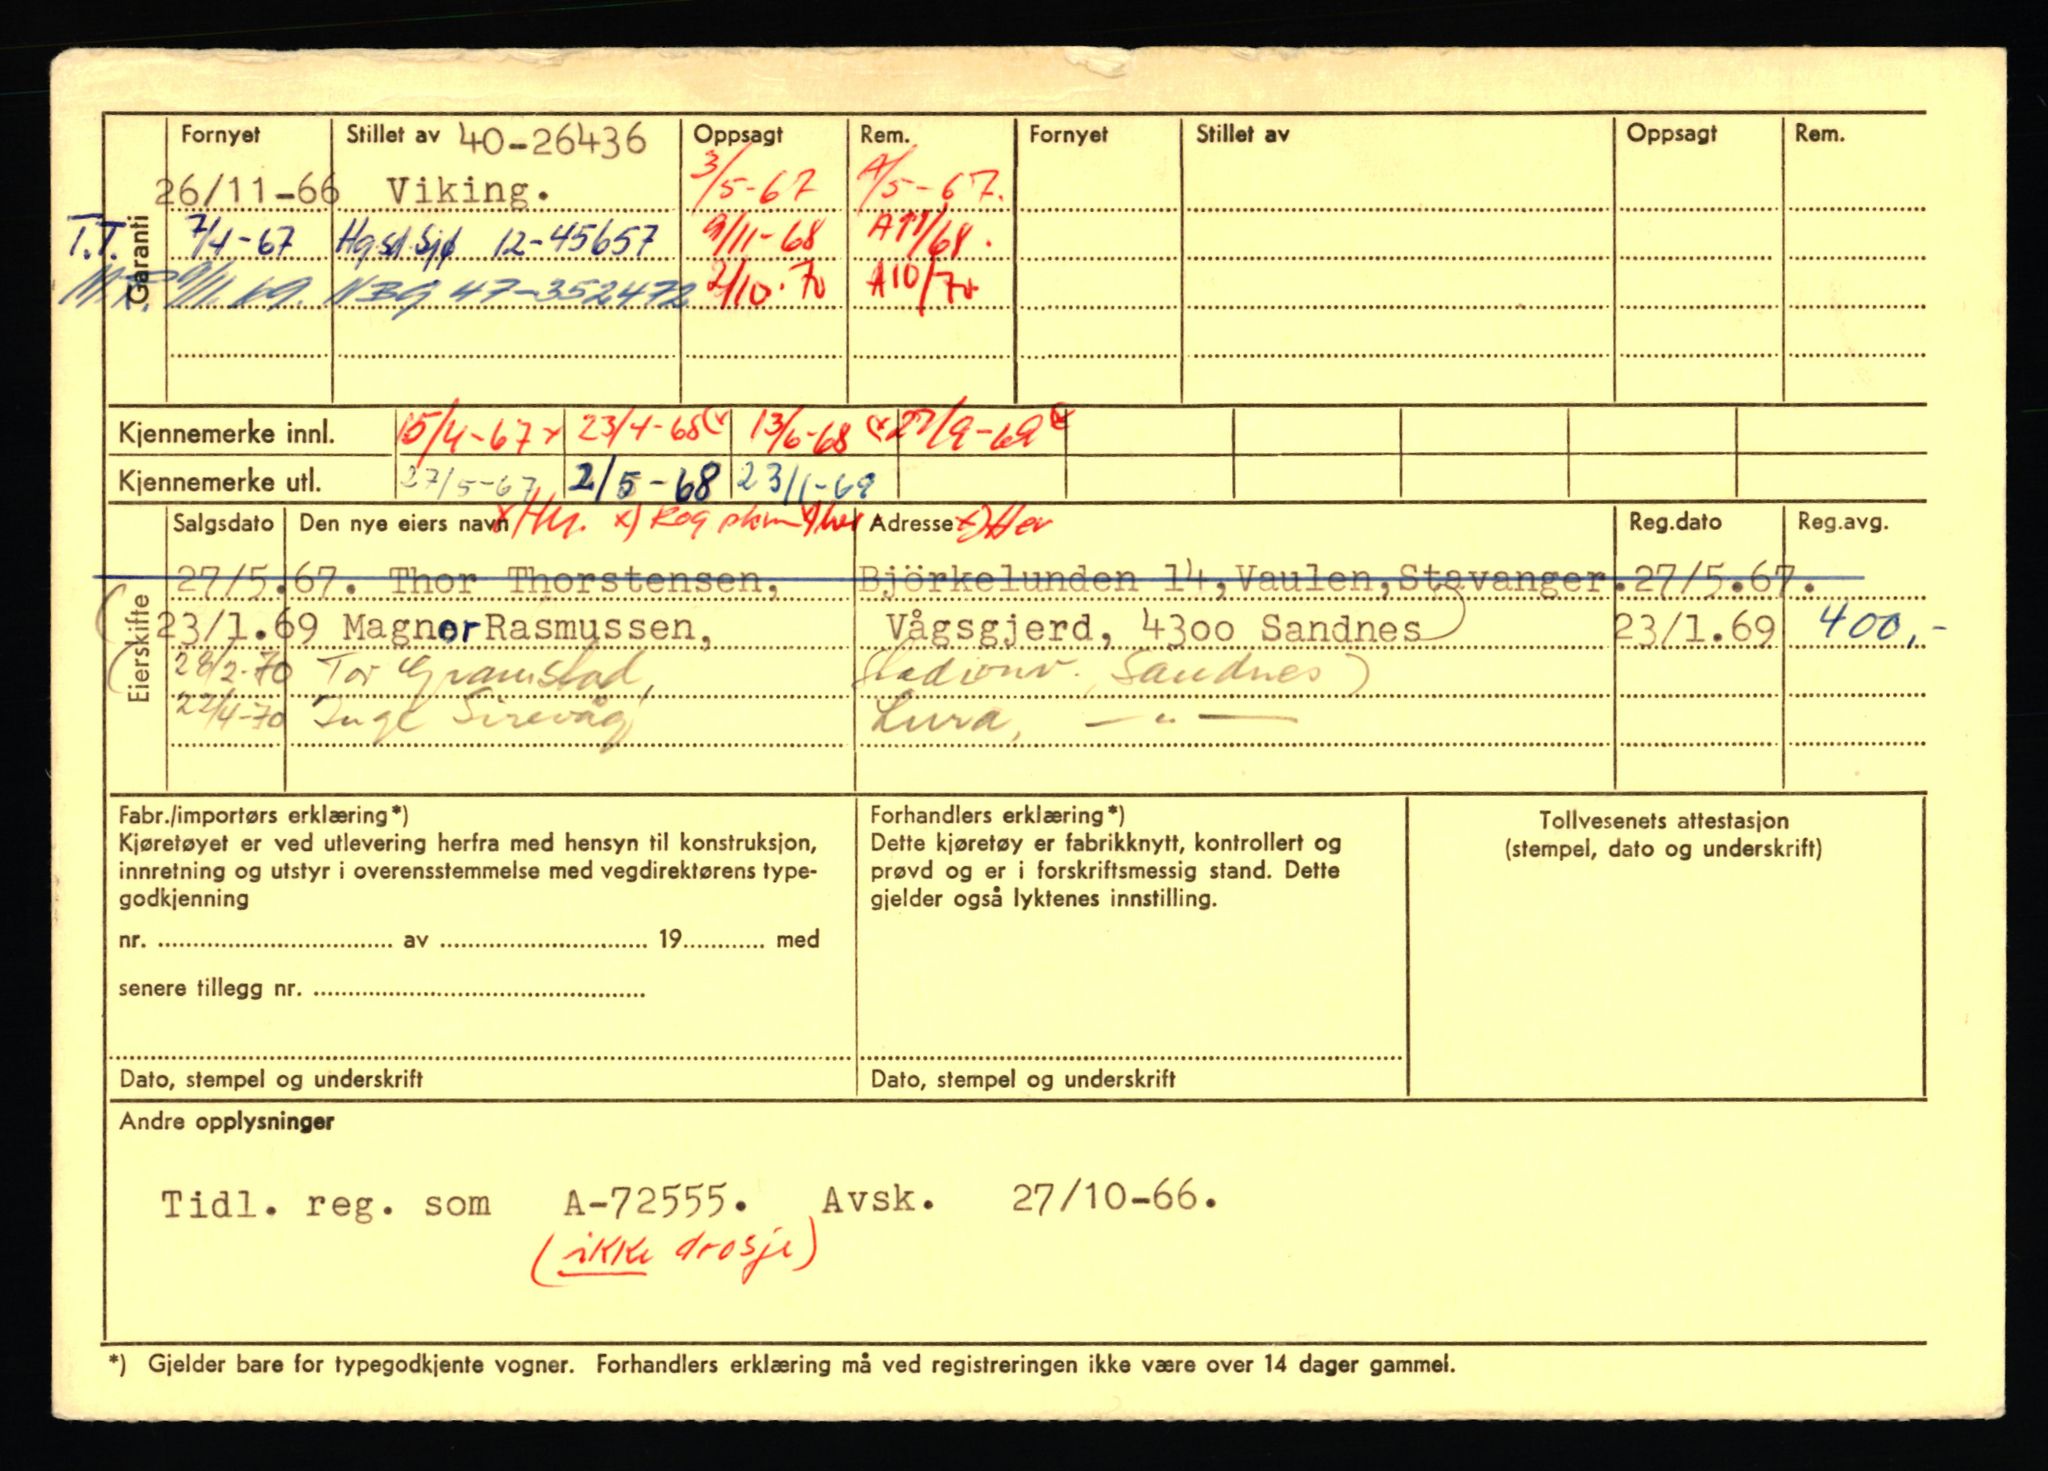 Garanti
Fornyet Stillet av 40-26436 Oppsagt Rem. Fornyet Stillet av Oppsagt Rem.
26/11-66 Viking. 3/5-67 A/5-67.
T.T. 7/4-67 12-45657 9/11-68 A11/68.
69. NBG 47-352472 2/10.70 A10/70
Kjennemerke innl. 15/4-67 x 23/4-68 (x 13/6-68 (x 27/9-69
Kjennemerke utl. 27/5-67 2/5-68 23/1-69
Eierskifte
Salgsdato Den nye eiers navn Adresse Reg.dato Reg.avg.
27/5.67. Thor Thorstensen, Björkelunden 14, Vaulen, Stavanger. 27/5.67.
23/1.69 Magnor Rasmussen, Vågsgjerd, 4300 Sandnes 23/1.69 400,-
28/2-70 Tor Gramstad, Stadionv., Sandnes)
22/4-70 Inge Sirevåg Lura, — " —
Fabr./importørs erklæring*)
Kjøretøyet er ved utlevering herfra med hensyn til konstruksjon,
innretning og utstyr i overensstemmelse med vegdirektørens type-
godkjenning
nr. .......... av .......... 19.......... med
senere tillegg nr. ..........
Dato, stempel og underskrift
Forhandlers erklæring*)
Dette kjøretøy er fabrikknytt, kontrollert og
prøvd og er i forskriftsmessig stand. Dette
gjelder også lyktenes innstilling.
Dato, stempel og underskrift
Tollvesenets attestasjon
(stempel, dato og underskrift)
Andre opplysninger
Tidl. reg. som A-72555. Avsk. 27/10-66.
(ikke drosje)
*) Gjelder bare for typegodkjente vogner. Forhandlers erklæring må ved registreringen ikke være over 14 dager gammel.